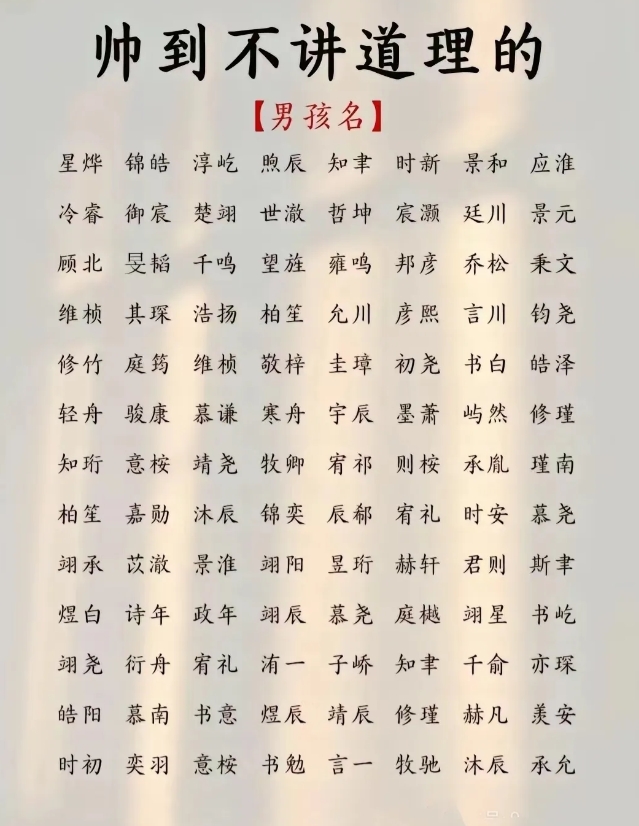 帅到不讲道理的
【男孩名】
星烨 锦皓 淳屹 煦辰 知聿 时新 景和 应淮
冷睿 御宸 楚翊 世澈 哲坤 宸灏 廷川 景元
顾北 旻韬 千鸣 望旌 雍鸣 邦彦 乔松 秉文
维桢 其琛 浩扬 柏笙 允川 彦熙 言川 钧尧
修竹 庭筠 维桢 敬梓 圭璋 初尧 书白 皓泽
轻舟 骏康 慕谦 寒舟 宇辰 墨萧 屿然 修瑾
知珩 意桉 靖尧 牧卿 宥祁 则桉 承胤 瑾南
柏笙 嘉勋 沐辰 锦奕 辰郗 宥礼 时安 慕尧
翊承 苡澈 景淮 翊阳 昱珩 赫轩 君则 斯聿
煜白 诗年 政年 翊辰 慕尧 庭樾 翊星 书屹
翊尧 衍舟 宥礼 洧一 子峤 知聿 千俞 亦琛
皓阳 慕南 书意 煜辰 靖辰 修瑾 赫凡 羡安
时初 奕羽 意桉 书勉 言一 牧驰 沐辰 承允